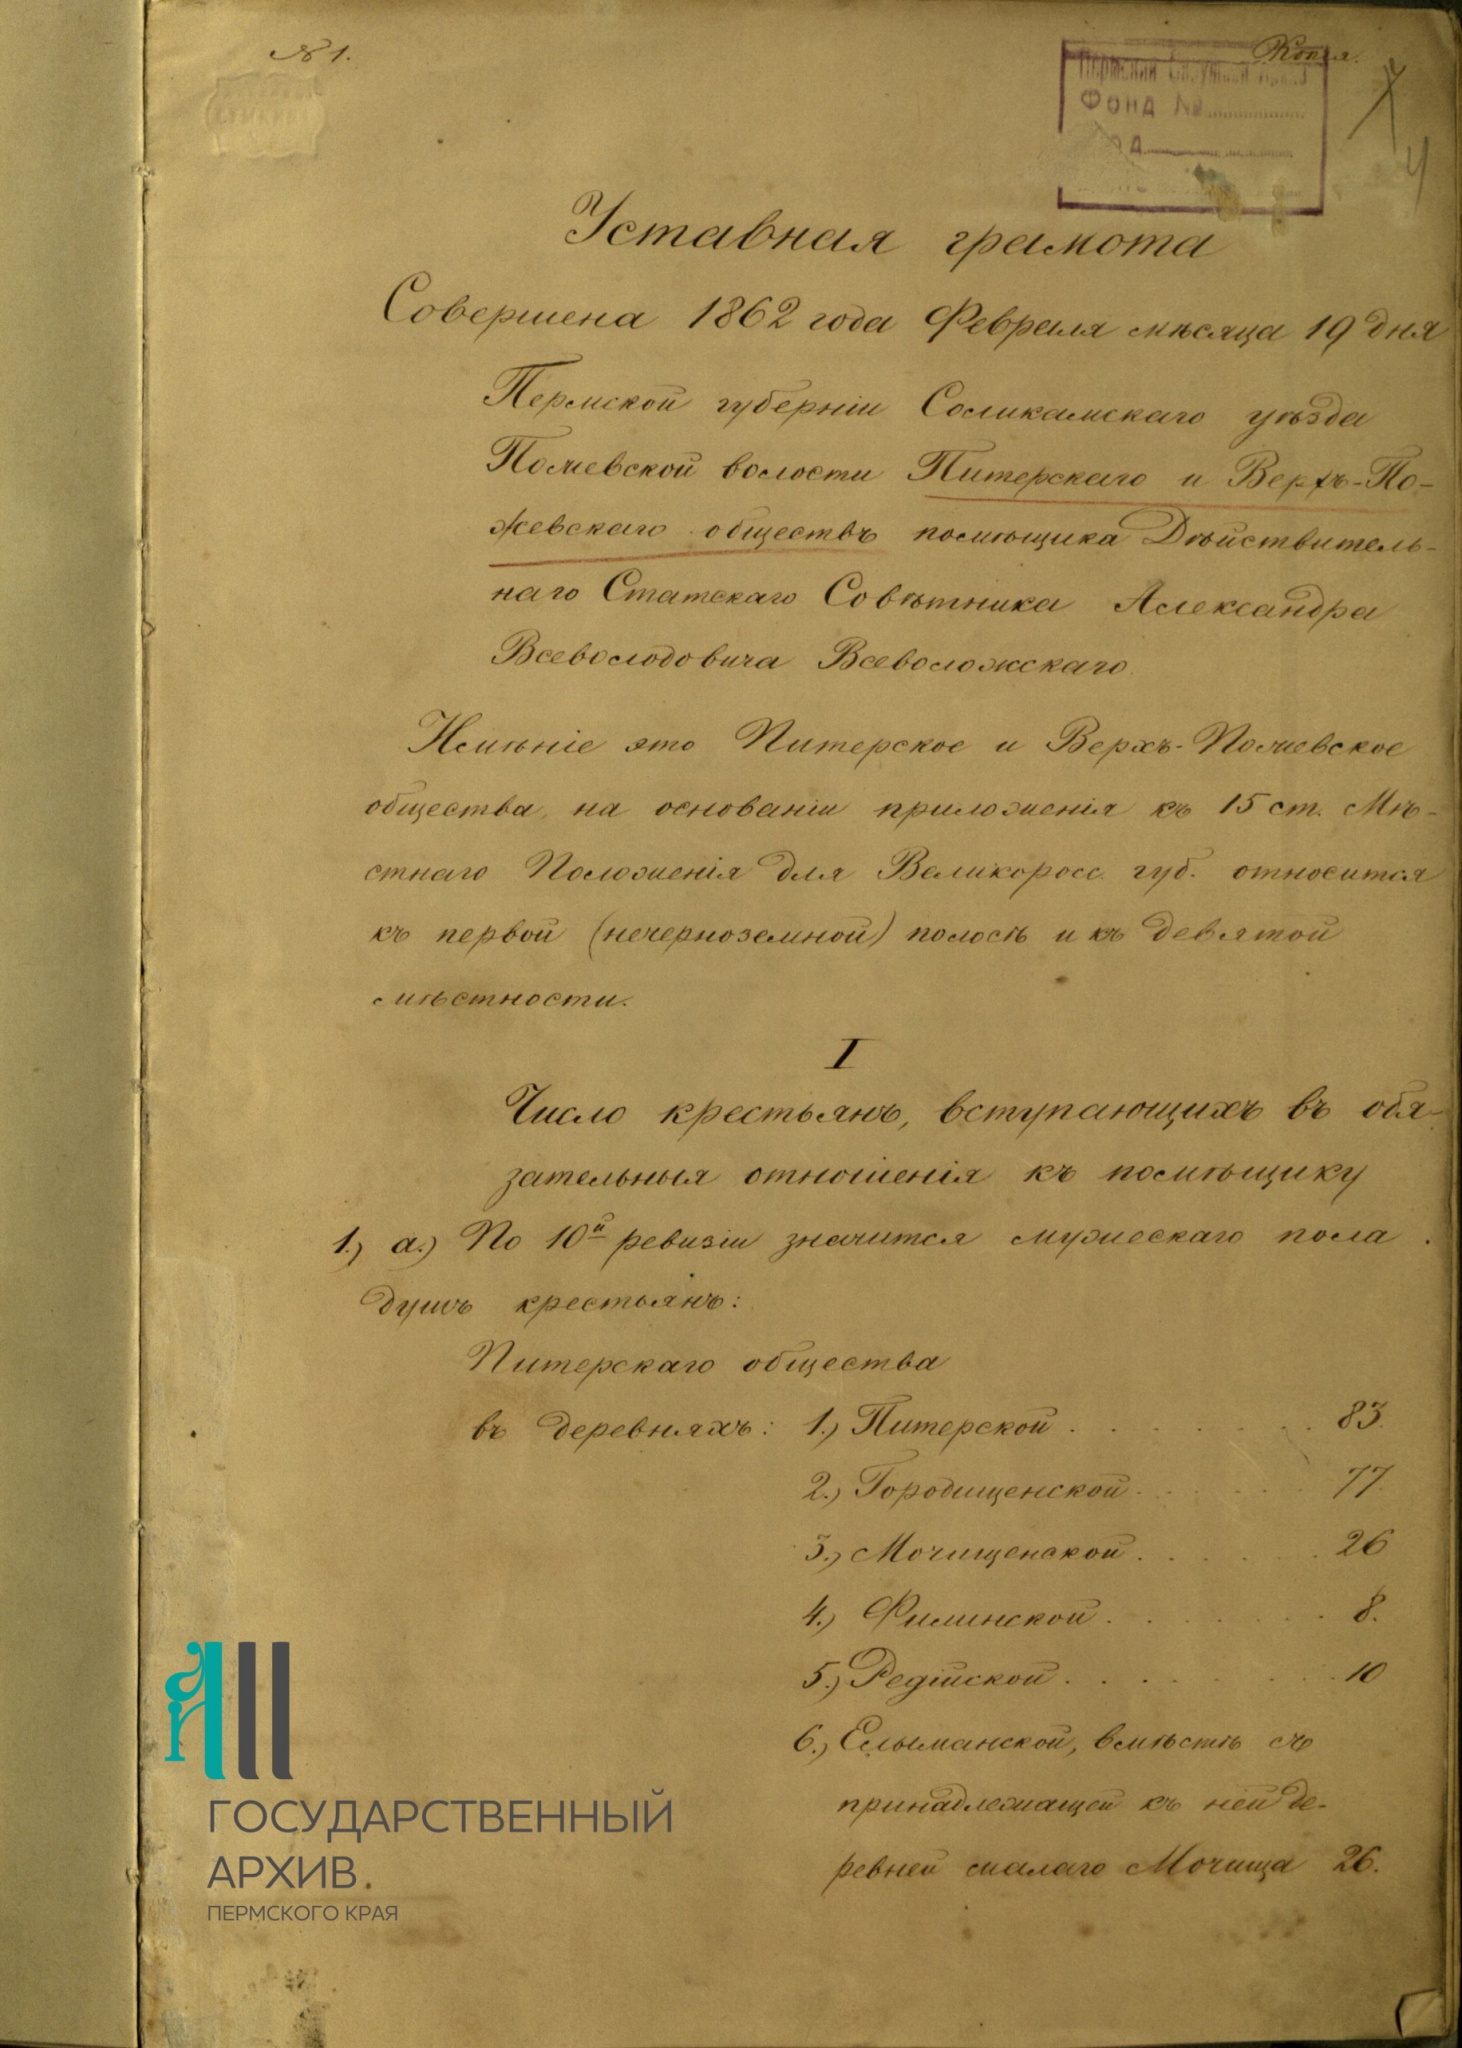 № 1.
Копія.
Фонд №
Уставная грамота
Совершена 1862 года Февраля мѣсяца 19 дня
Пермской губерніи Соликамскаго уѣзда
Пожевской волости Питерскаго и Верхъ-По-
жевскаго обществъ помѣщика Дѣйствитель-
наго Статскаго Совѣтника Александра
Всеволодовича Всеволожскаго.
Имѣніе это Питерское и Верхъ-Пожевское
общества, на основаніи приложенія къ 15 ст. Мѣ-
стнаго Положенія для Великоросс. губ. относится
къ первой (нечерноземной) полосѣ и къ девятой
мѣстности.
I
Число крестьянъ, вступающихъ въ обя-
зательныя отношенія къ помѣщику
1.) а.) По 10й ревизіи значится мужескаго пола
душъ крестьянъ:
Питерскаго общества
въ деревняхъ: 1.) Питерской . . . . . . . 83.
2.) Городищенской . . . . . . 77.
3.) Мочищенской . . . . . . 26
4.) Филинской . . . . . . . 8.
5.) . . . . . . . 10
6.) Елыманской, вмѣстѣ съ
принадлежащей къ ней де-
ревней малаго Мочища 26.
ГОСУДАРСТВЕННЫЙ
АРХИВ.
ПЕРМСКОГО КРАЯ